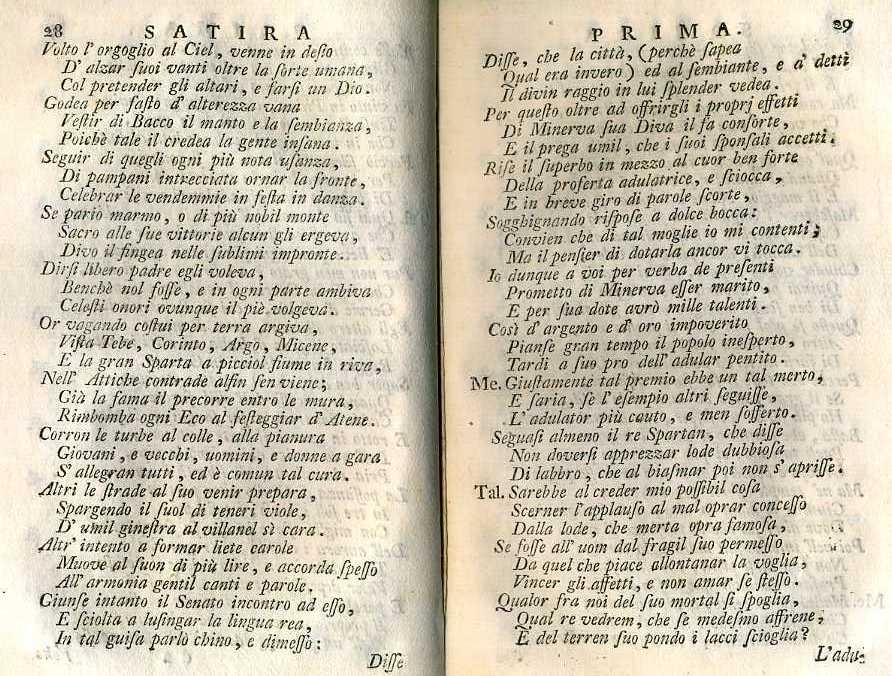 28 SATIRA
Volto l' orgoglio al Ciel, venne in deſio
D' alzar ſuoi vanti oltre la ſorte umana,
Col pretender gli altari, e farſi un Dio.
Godea per faſto d' alterezza vana
Veſtir di Bacco il manto e la ſembianza,
Poichè tale il credea la gente inſana.
Seguir di quegli ogni più nota uſanza,
Di pampani intrecciata ornar la fronte,
Celebrar le vendemmie in feſta in danza.
Se pario marmo, o di più nobil monte
Sacro alle ſue vittorie alcun gli ergeva,
Divo il fingea nelle ſublimi impronte.
Dirſi libero padre egli voleva,
Benchè nol foſſe, e in ogni parte ambiva
Celeſti onori ovunque il piè volgeva.
Or vagando coſtui per terra argiva,
Viſta Tebe, Corinto, Argo, Micene,
E la gran Sparta a picciol fiume in riva,
Nell' Attiche contrade alfin ſen viene;
Già la fama il precorre entro le mura,
Rimbomba ogni Eco al feſteggiar d' Atene.
Corron le turbe al colle, alla pianura
Giovani, e vecchi, uomini, e donne a gara
S' allegran tutti, ed è comun tal cura.
Altri le ſtrade al ſuo venir prepara,
Spargendo il ſuol di teneri viole,
D' umil gineſtra al villanel sì cara.
Altr' intento a formar liete carole
Muove al ſuon di più lire, e accorda ſpeſſo
All' armonia gentil canti e parole.
Giunſe intanto il Senato incontro ad eſſo,
E ſciolta a luſingar la lingua rea,
In tal guiſa parlò chino, e dimeſſo:
Diſſe
PRIMA. 29
Diſſe, che la città, (perchè ſapea
Qual era invero) ed al ſembiante, e a' detti
Il divin raggio in lui ſplender vedea.
Per queſto oltre ad offrirgli i proprj effetti
Di Minerva ſua Diva il fa conſorte,
E il prega umil, che i ſuoi ſponſali accetti.
Riſe il ſuperbo in mezzo al cuor ben forte
Della proferta adulatrice, e ſciocca,
E in breve giro di parole ſcorte,
Sogghignando riſpoſe a dolce bocca:
Convien che di tal moglie io mi contenti;
Ma il penſier di dotarla ancor vi tocca.
Io dunque a voi per verba de preſenti
Prometto di Minerva eſſer marito,
E per ſua dote avrò mille talenti.
Così d' argento e d' oro impoverito
Pianſe gran tempo il popolo ineſperto,
Tardi a ſuo pro dell' adular pentito.
Me. Giuſtamente tal premio ebbe un tal merto,
E faria, ſe l' eſempio altri ſeguiſſe,
L' adulator più cauto, e men ſofferto.
Seguaſi almeno il re Spartan, che diſſe
Non doverſi apprezzar lode dubbioſa
Di labbro, che al biaſmar poi non s' apriſſe.
Tal. Sarebbe al creder mio poſſibil coſa
Scerner l' applauſo al mal oprar conceſſo
Dalla lode, che merta opra famoſa,
Se foſſe all' uom dal fragil ſuo permeſſo
Da quel che piace allontanar la voglia,
Vincer gli affetti, e non amar ſe ſteſſo.
Qualor fra noi del ſuo mortal ſi ſpoglia,
Qual re vedrem, che ſe medeſmo affrene,
E del terren ſuo pondo i lacci ſcioglia?
L'adu-